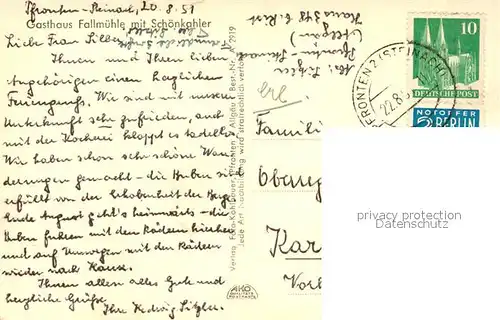 Pfronten-Steinach, 20.8.51
Gasthaus Fallmühle mit Schönkahler
Liebe Frau Silber,
Ihnen und Ihren lieben
Angehörigen einen herzlichen
Feriengruß. Wir sind mit unserer
Unterkunft sehr zufrieden, auch
mit der Kocherei klappt es tadellos.
Wir haben schon sehr schöne Wan-
derungen gemacht - die Buben sind
erfüllt von der Erhabenheit der Berge.
Ende August geht's heimwärts - die
Buben fahren mit den Rädern hierher
und auf Umwegen mit den Rädern
wieder nach Hause.
Ihnen allen alles Gute und
herzliche Grüße
Ihre Hedwig Sitzler.
Verlag Foto-Kohlbauer, Pfronten i. Allgäu / Best.-Nr. 2919
Jede Art Nachbildung wird strafrechtlich verfolgt
AKO
Abs: Sitzler
Pfronten-Steinach
(Allgäu)
Haus 318 b. Rist
10
DEUTSCHE POST
PFRONTEN 2 (STEINACH)
22.8.
NOTOPFER
2 BERLIN
Famili
Oberreg
Kar
privacy protection
Datenschutz